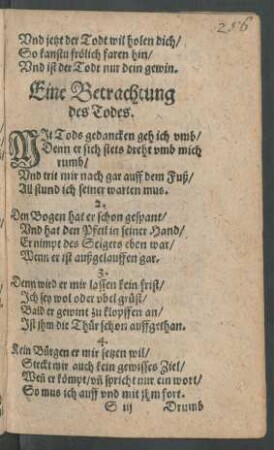 256
Vnd jetzt der Todt wil holen dich/
So kanstu frölich faren hin/
Vnd ist der Todt nur dein gewin.
Eine Betrachtung
des Todes.
MIt Tods gedancken geh ich vmb/
Denn er sich stets dreht vmb mich
rumb/
Vnd trit mir nach gar auff dem Fuß/
All stund ich seiner warten mus.
2.
Den Bogen hat er schon gespant/
Vnd hat den Pfeil in seiner Hand/
Er nimpt des Seigers eben war/
Wenn er ist außgelauffen gar.
3.
Denn wird er mir lassen kein frist/
Ich sey wol oder vbel grüst/
Bald er gewint zu klopffen an/
Ist jhm die Thür schon auffgethan.
4.
Kein Bürgen er mir setzen wil/
Steckt mir auch kein gewisses Ziel/
Weñ er kömpt/ vñ spricht nur ein wort/
So mus ich auff vnd mit jhm fort.
S iij Drumb